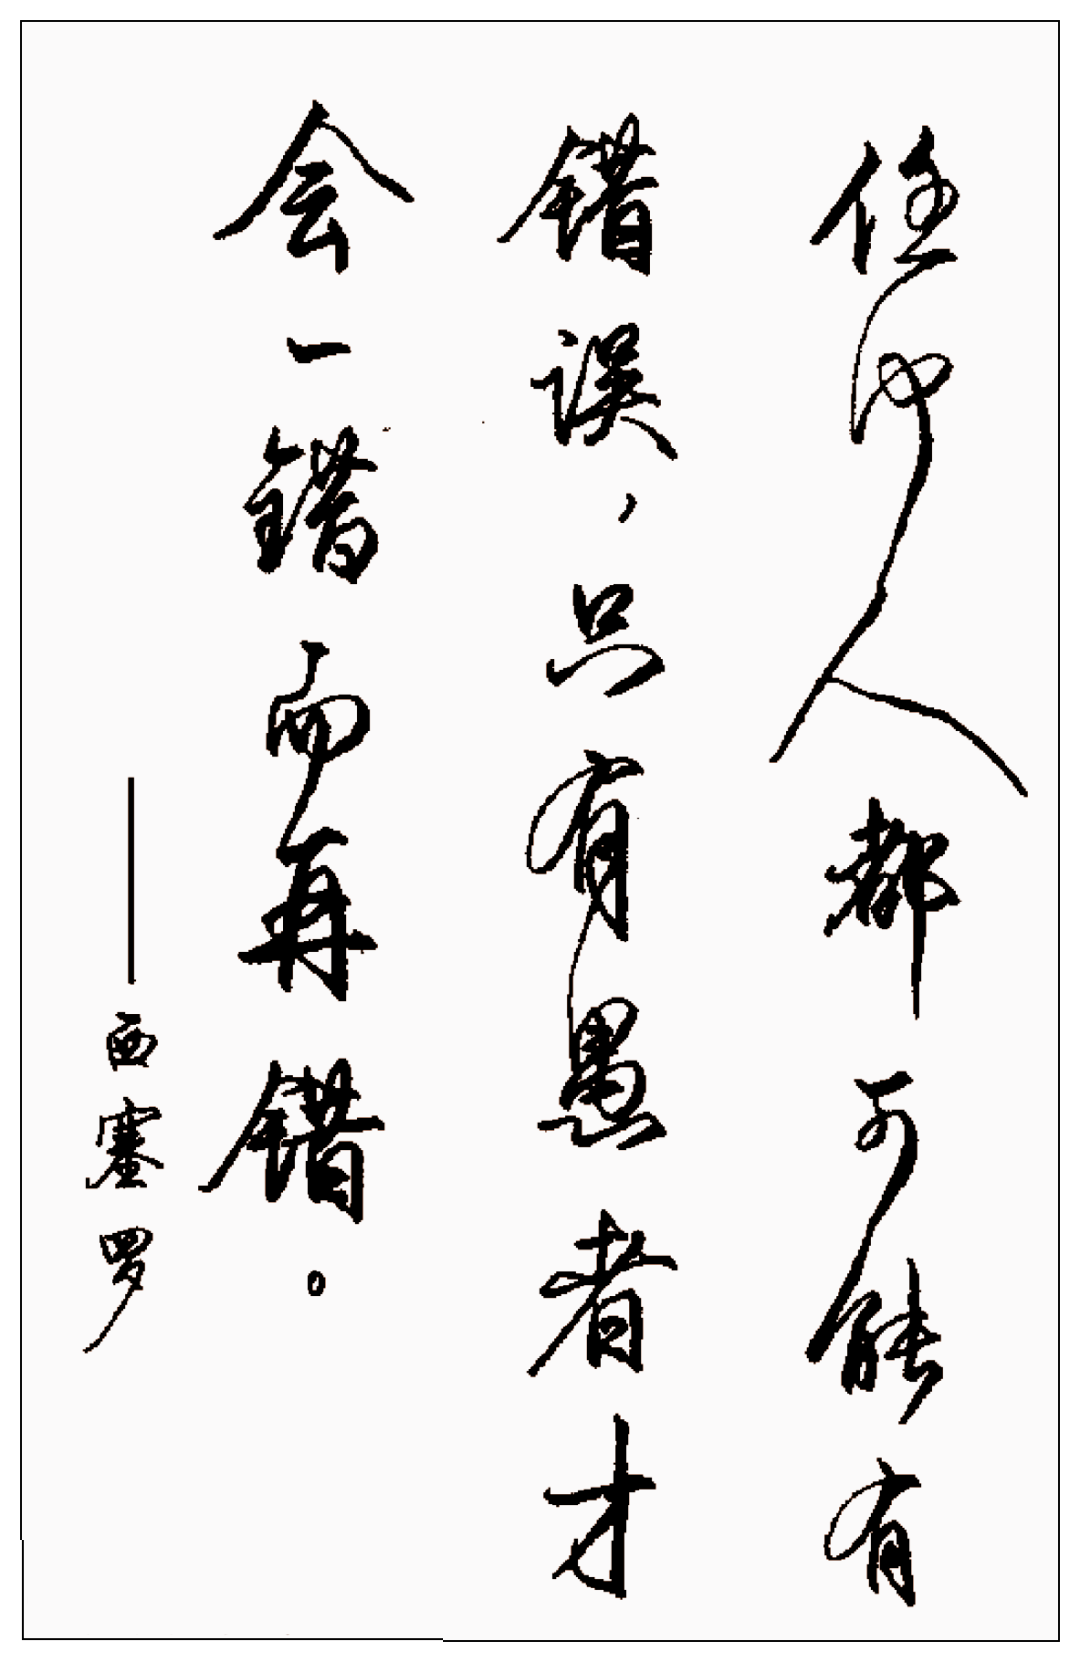 任何人都可能有
错误，只有愚者才
会一错而再错。
——西塞罗